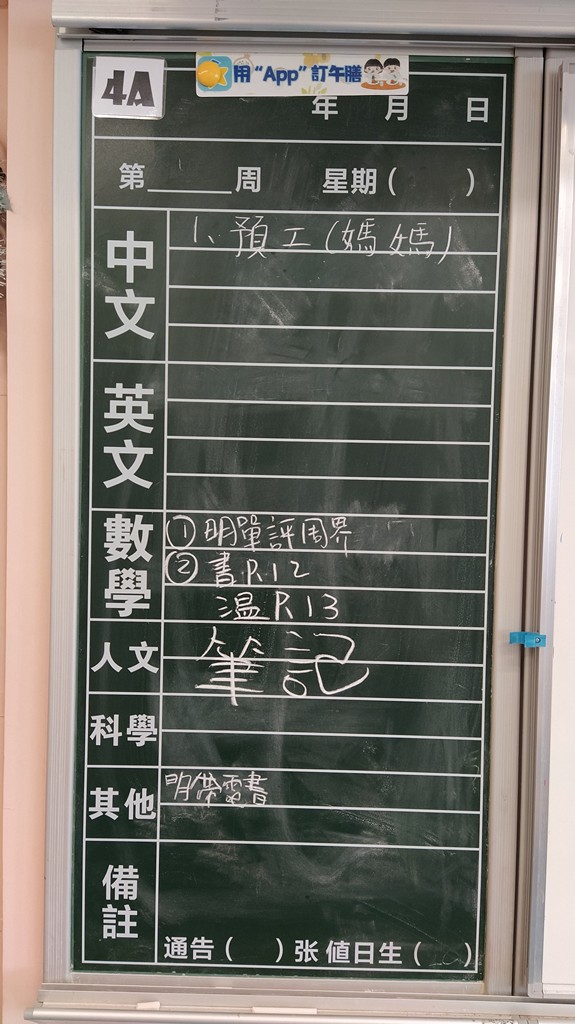 用“App”訂午膳
4A
年 月 日
第______周 星期( )
中文
1、預工(媽媽)
英文
數學
① 明單評周界
② 書R12
温R13
人文
筆記
科學
其他
明帶電書
備註
通告( )张 值日生( )